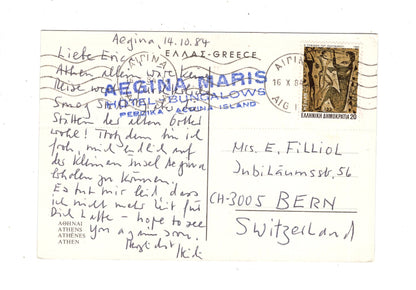 Aegina, 14.10.84
ΕΛΛΑΣ-GREECE
Liebe Erica
Athen allein war keine
Reise wert
AEGINA MARIS
HOTEL - BUNGALOWS
PERDIKA - AEGINA ISLAND
Stätten der alten Götter
wohl! Trotzdem bin ich
froh, mich endlich auf
der kleinen Insel Aegina
erholen zu können.
Es tut mir leid dass
ich nicht mehr Zeit für
Dich hatte - hope to see
you again soon.
Herzlichst
ΑΘΗΝΑΙ
ATHENS
ATHÈNES
ATHEN
ΑΙΓΙΝΑ
ΑΙΓΙΝΑ
16 X 84
ΕΛΛΗΝΙΚΗ ΔΗΜΟΚΡΑΤΙΑ 20
Mrs. E. Filliol
Jubiläumsstr. 56
CH-3005 BERN
Switzerland